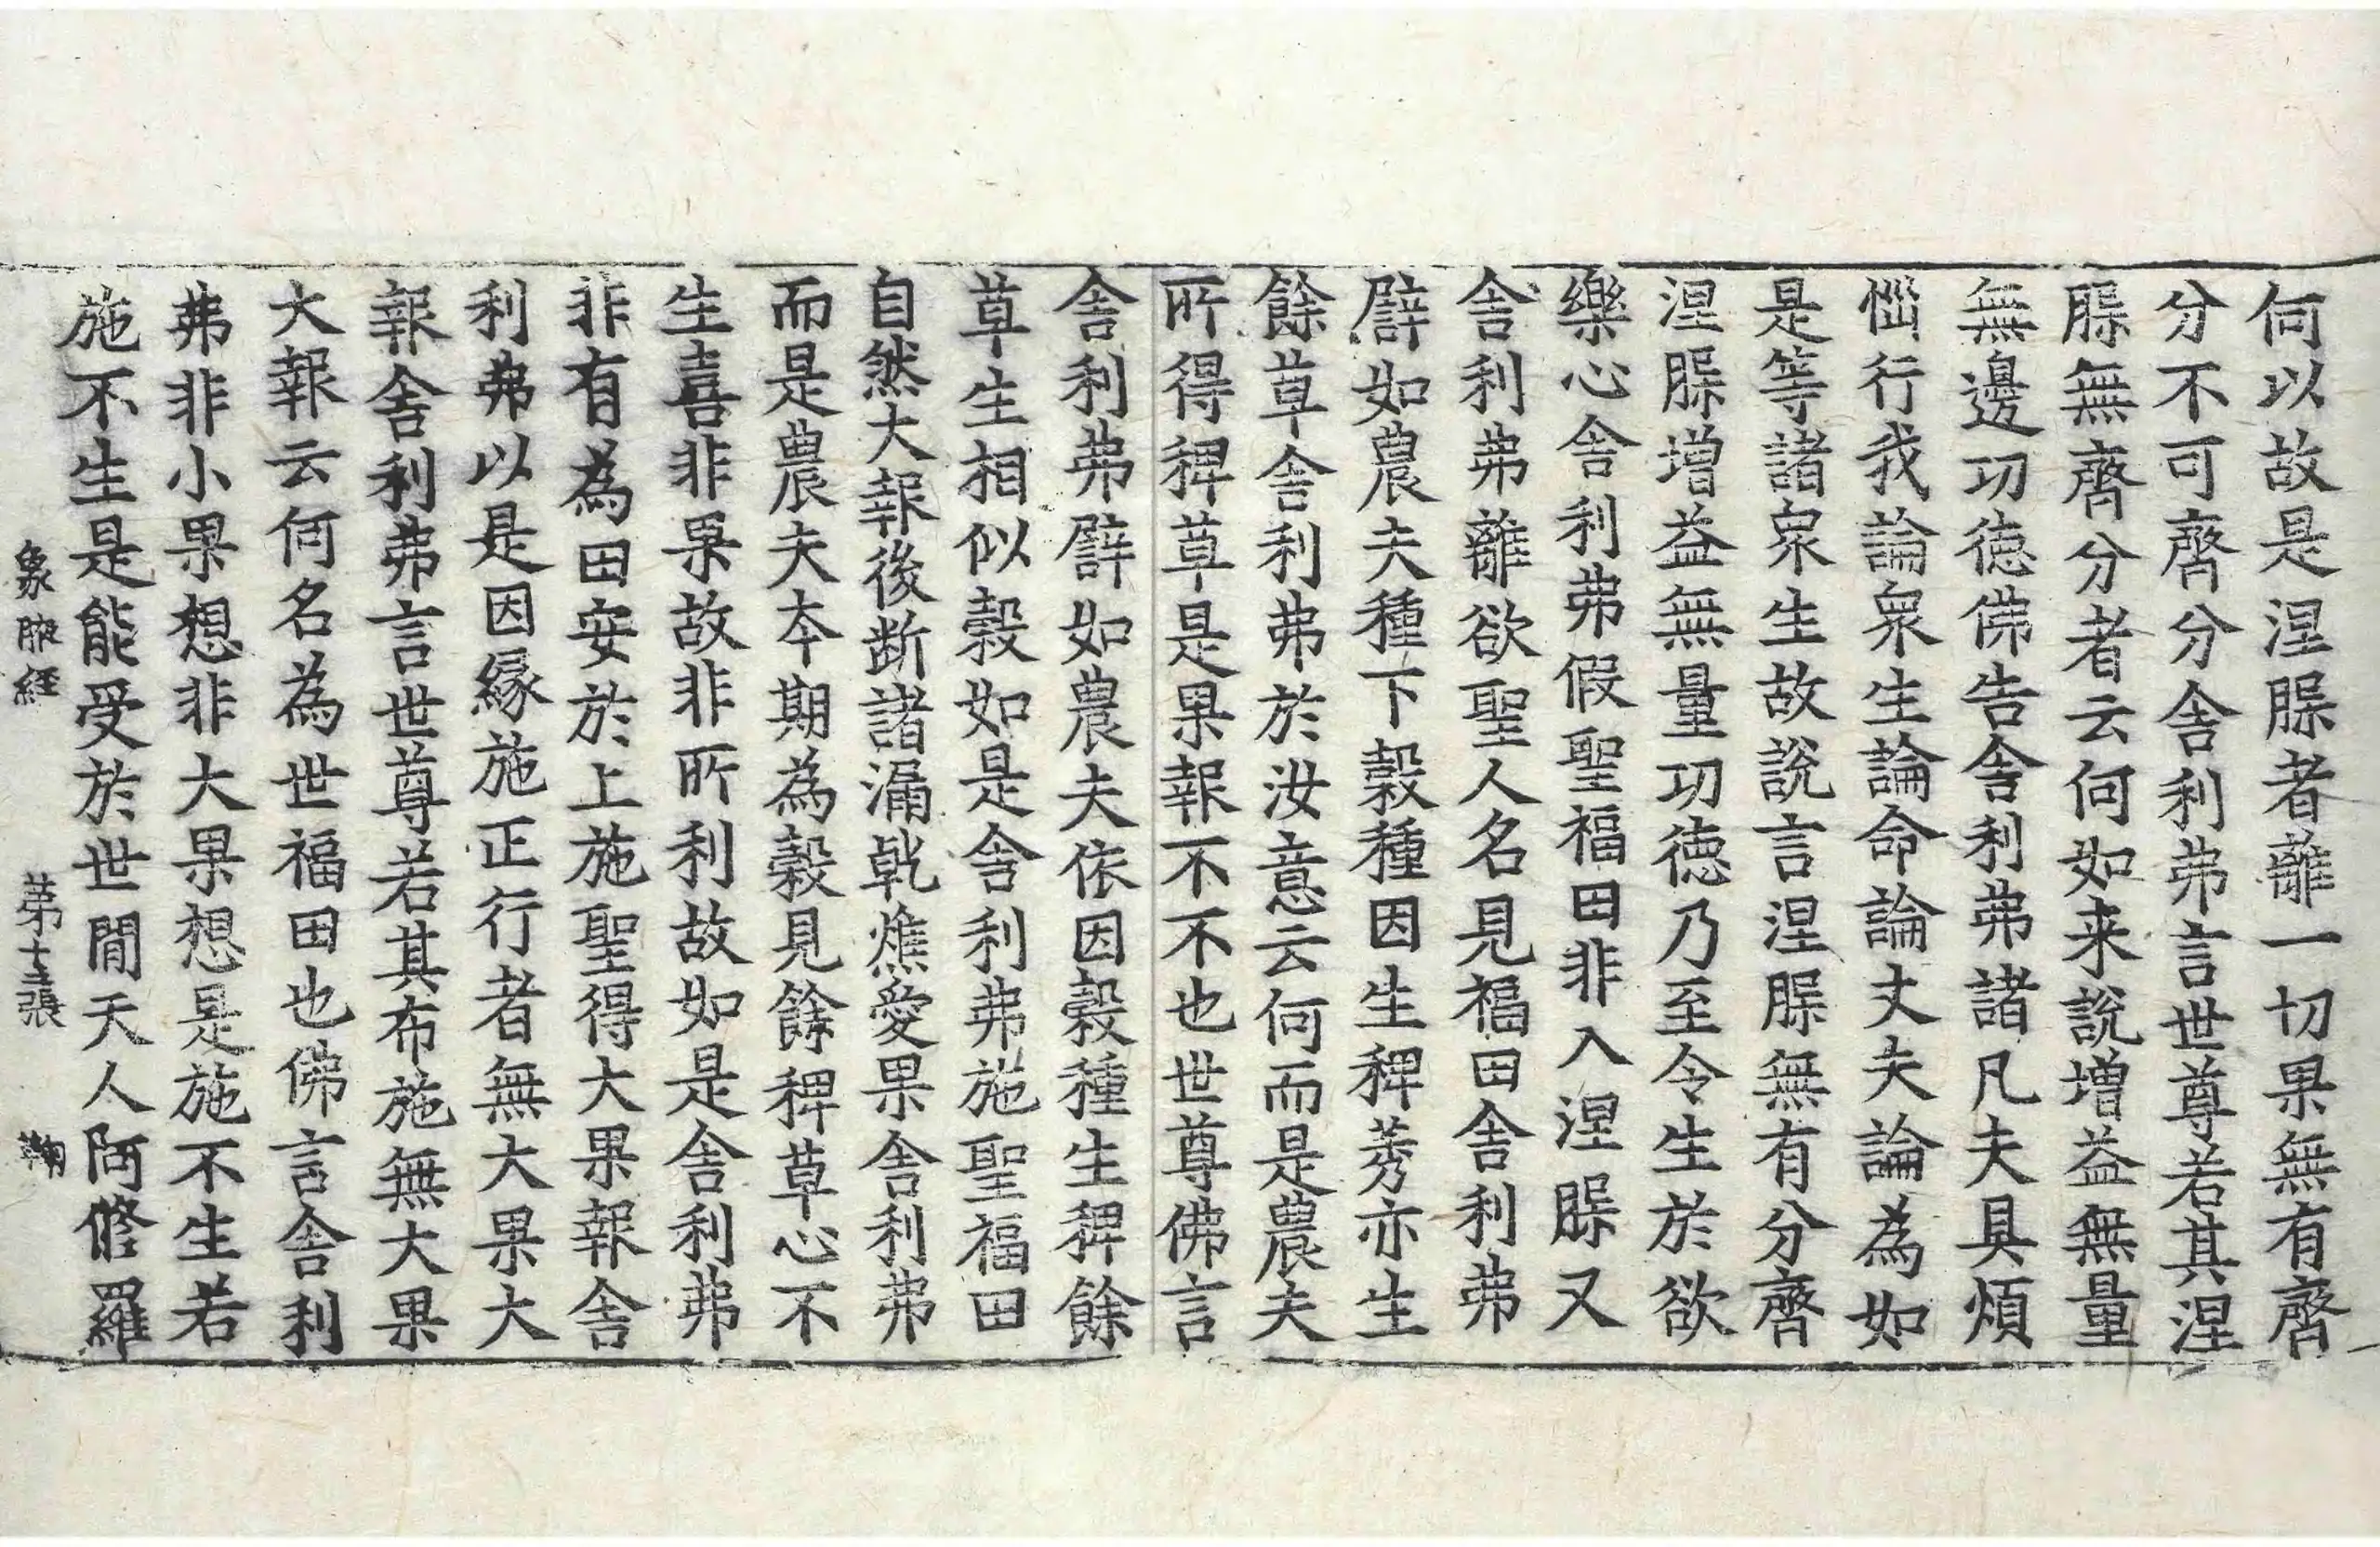 何以故是涅㮈者離一切果無有齊
分不可齊分舍利弗言世尊若其涅
㮈無齊分者云何如来說增益無量
無邊功徳佛告舍利弗諸凡夫具煩
惱行我論衆生論命論丈夫論為如
是等諸衆生故說言涅㮈無有分齊
涅㮈增益無量功徳乃至令生於欲
樂心舍利弗假聖福田非入涅㮈又
舍利弗離欲聖人名見福田舍利弗
譬如農夫種下穀種因生稗莠亦生
餘草舍利弗於汝意云何而是農夫
所得稗草是果報不不也世尊佛言
舍利弗譬如農夫依因穀種生稗餘
草生相似穀如是舍利弗施聖福田
自然大報後断諸漏乾燋愛果舍利弗
而是農夫本期為穀見餘稗草心不
生喜非果故非所利故如是舍利弗
非有為田安於上施聖得大果報舍
利弗以是因縁施正行者無大果大
報舍利弗言世尊若其布施無大果
大報云何名為世福田也佛言舍利
弗非小果想非大果想是施不生若
施不生是能受於世間天人阿脩羅
象腋経 苐十三張 翰